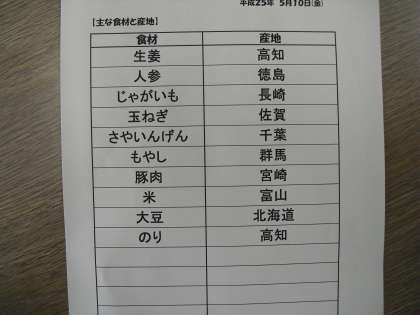 平成25年 5月10日(金)
【主な食材と産地】
食材 産地
生姜 高知
人参 徳島
じゃがいも 長崎
玉ねぎ 佐賀
さやいんげん 千葉
もやし 群馬
豚肉 宮崎
米 富山
大豆 北海道
のり 高知